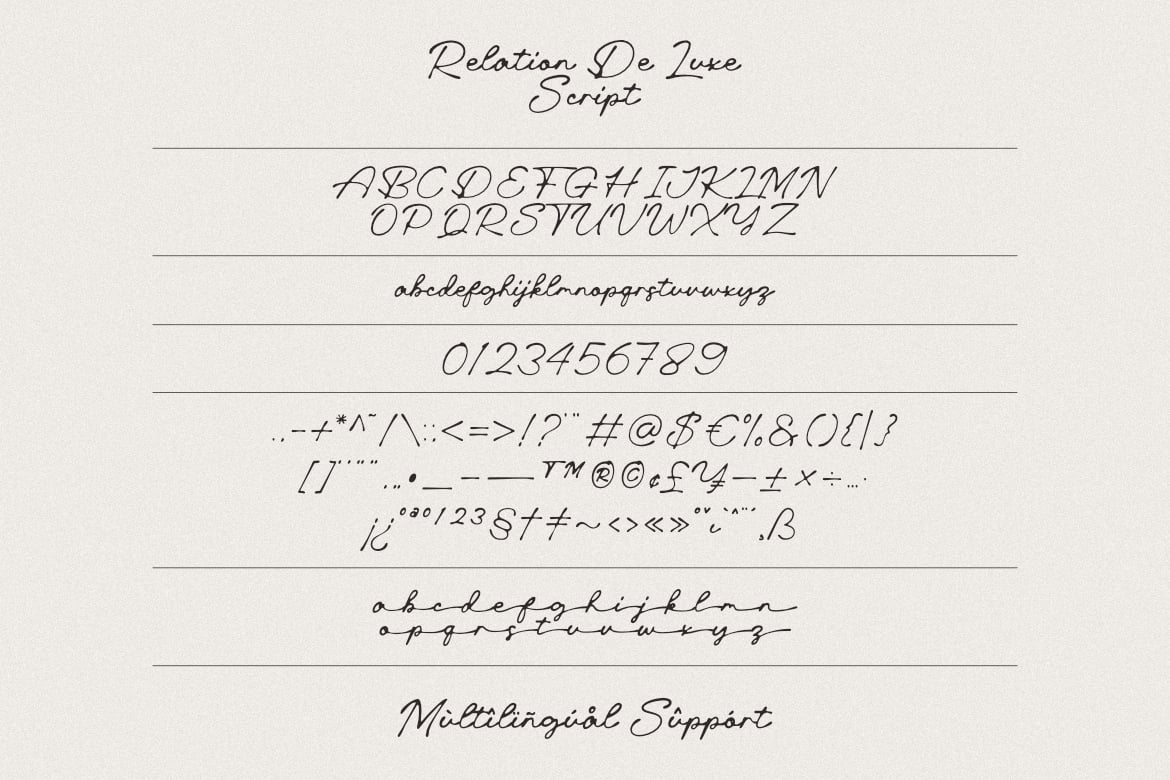 Relation De Luxe
Script
ABCDEFGHIJKLMN
OPQRSTUVWXYZ
abcdefghijklmnopqrstuvwxyz
0123456789
.,-+*^~/\:;<=>!?'"#@$€%&(){|}
[]‘’“”‚„•_–—™®©¢£¥−±×÷…·
¡¿°ªº123§†‡~‹›«»˚ˇ˘`ˆ¨´¸ß
abcdefghijklmn
opqrstuvwxyz
Mùltîlïñgúål Sûppórt